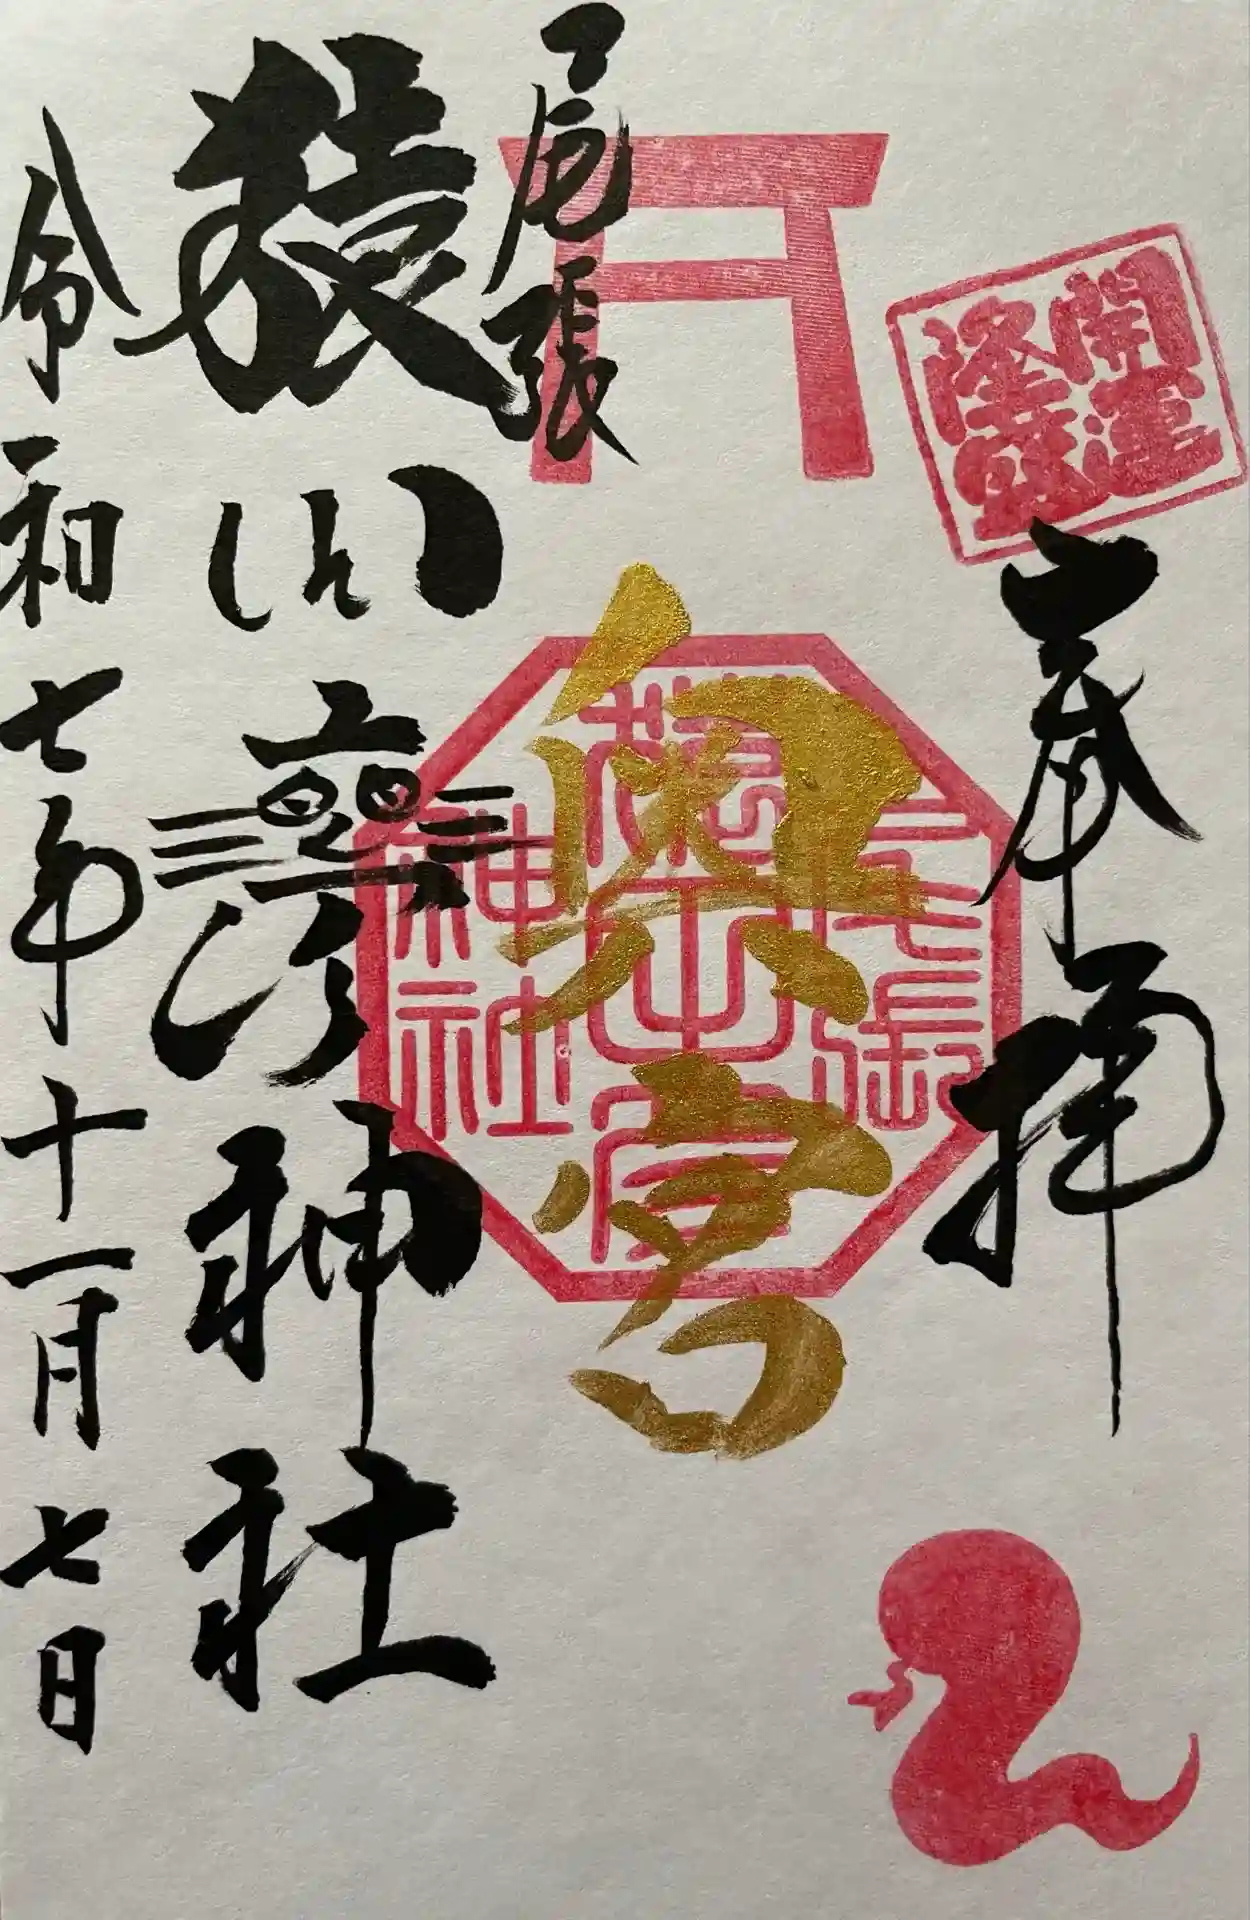 開運
奉拝
奥宮
尾張
神社
尾張
猿田彦神社
令和七年十一月七日